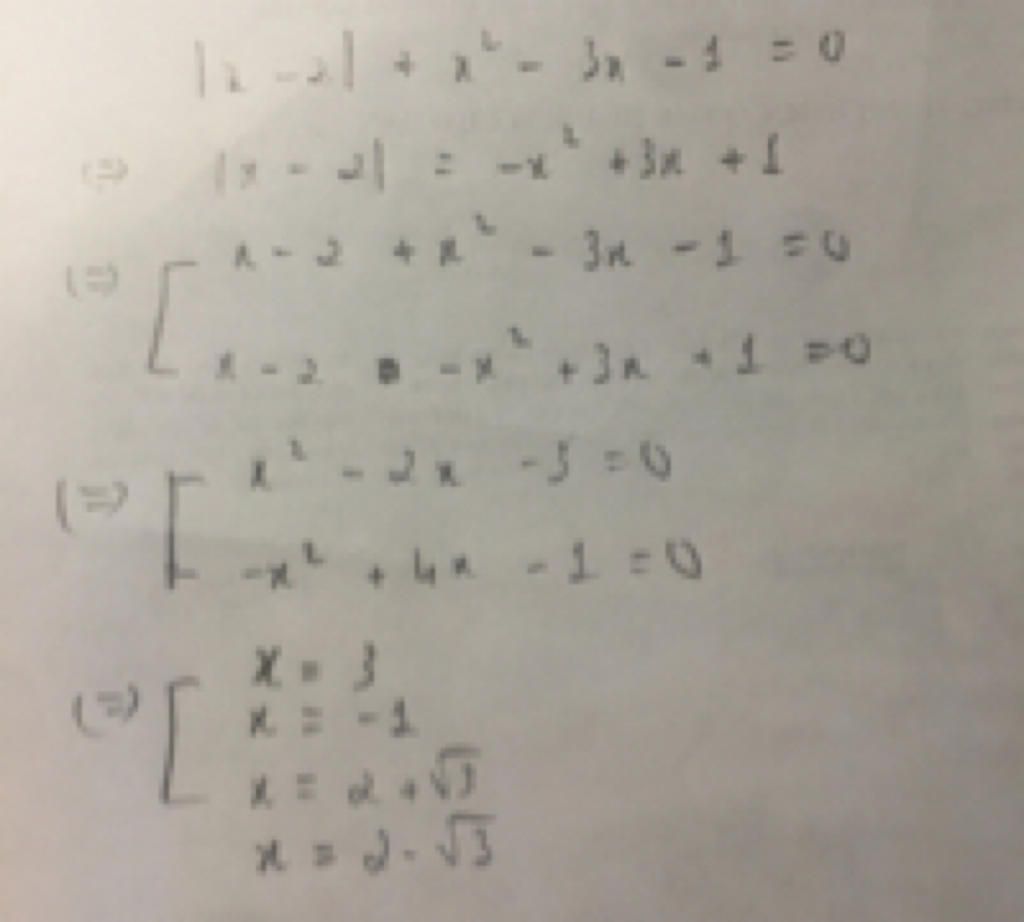 |x - 2| + x² - 3x - 1 = 0
(=) |x - 2| = -x² + 3x + 1
(=) [ x - 2 + x² - 3x - 1 = 0
x - 2 - x² + 3x + 1 = 0
(=) [ x² - 2x - 3 = 0
-x² + 4x - 1 = 0
(=) [ x = 3
x = -1
x = 2 + √3
x = 2 - √3